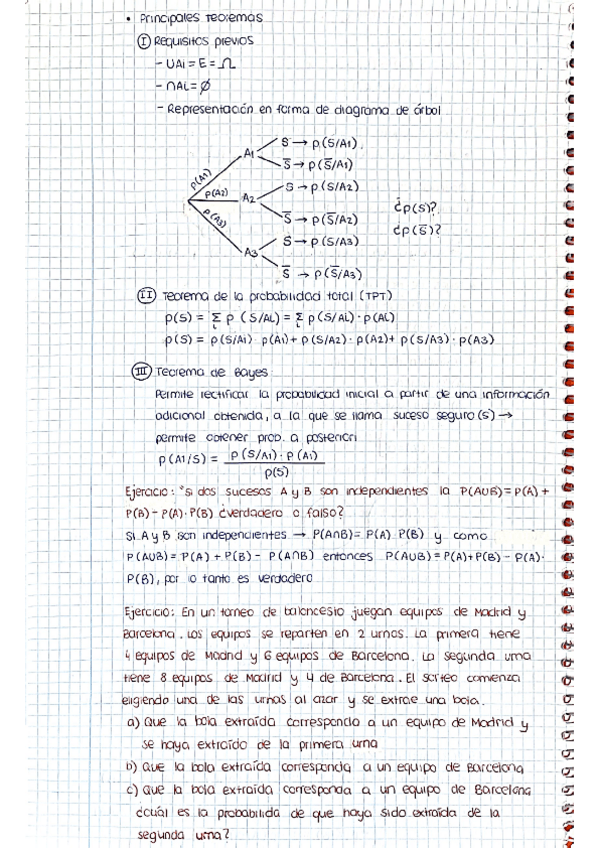 • Principales Teoremas
I Requisitos previos
- UAi = E = Ω
- ∩Ai = Ø
- Representación en forma de diagrama de árbol
S → p(S/A1)
A1
p(A1)
S̅ → p(S̅/A1)
S → p(S/A2)
p(A2) A2
¿p(S)?
S̅ → p(S̅/A2)
¿p(S̅)?
p(A3)
S → p(S/A3)
A3
S̅ → p(S̅/A3)
II Teorema de la probabilidad total (TPT)
p(S) = Σi p (S/Ai) = Σi p(S/Ai) · p(Ai)
p(S) = p(S/A1) · p(A1) + p(S/A2) · p(A2) + p(S/A3) · p(A3)
III Teorema de Bayes
Permite rectificar la probabilidad inicial a partir de una información
adicional obtenida, a la que se llama suceso seguro (S) →
permite obtener prob. a posteriori
p(A1/S) = p(S/A1) · p(A1) / p(S)
Ejercicio: "si dos sucesos A y B son independientes la P(A∪B) = P(A) +
P(B) - P(A) · P(B) ¿verdadero o falso?
Si A y B son independientes → P(A∩B) = P(A) · P(B) y como
P(A∪B) = P(A) + P(B) - P(A∩B) entonces P(A∪B) = P(A) + P(B) - P(A) ·
P(B), por lo tanto es verdadero
Ejercicio: En un torneo de baloncesto juegan equipos de Madrid y
Barcelona. Los equipos se reparten en 2 urnas. La primera tiene
4 equipos de Madrid y 6 equipos de Barcelona. La segunda urna
tiene 8 equipos de Madrid y 4 de Barcelona. El sorteo comienza
eligiendo una de las urnas al azar y se extrae una bola.
a) Que la bola extraída corresponda a un equipo de Madrid y
se haya extraído de la primera urna
b) Que la bola extraída corresponda a un equipo de Barcelona
c) Que la bola extraída corresponda a un equipo de Barcelona
¿cuál es la probabilida de que haya sido extraída de la
segunda urna?